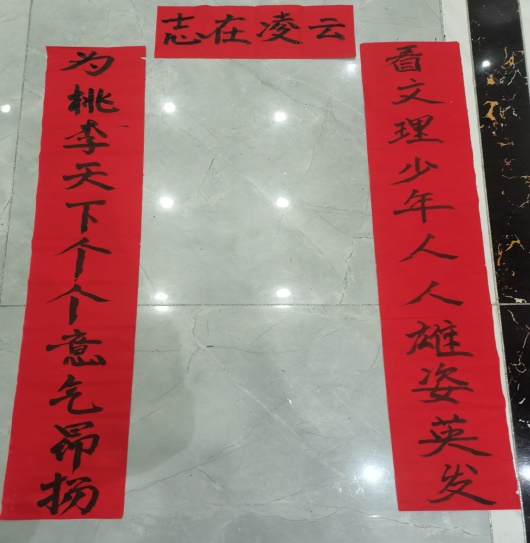 志在凌云
看文理少年人人雄姿英发
为桃李天下个个意气昂扬